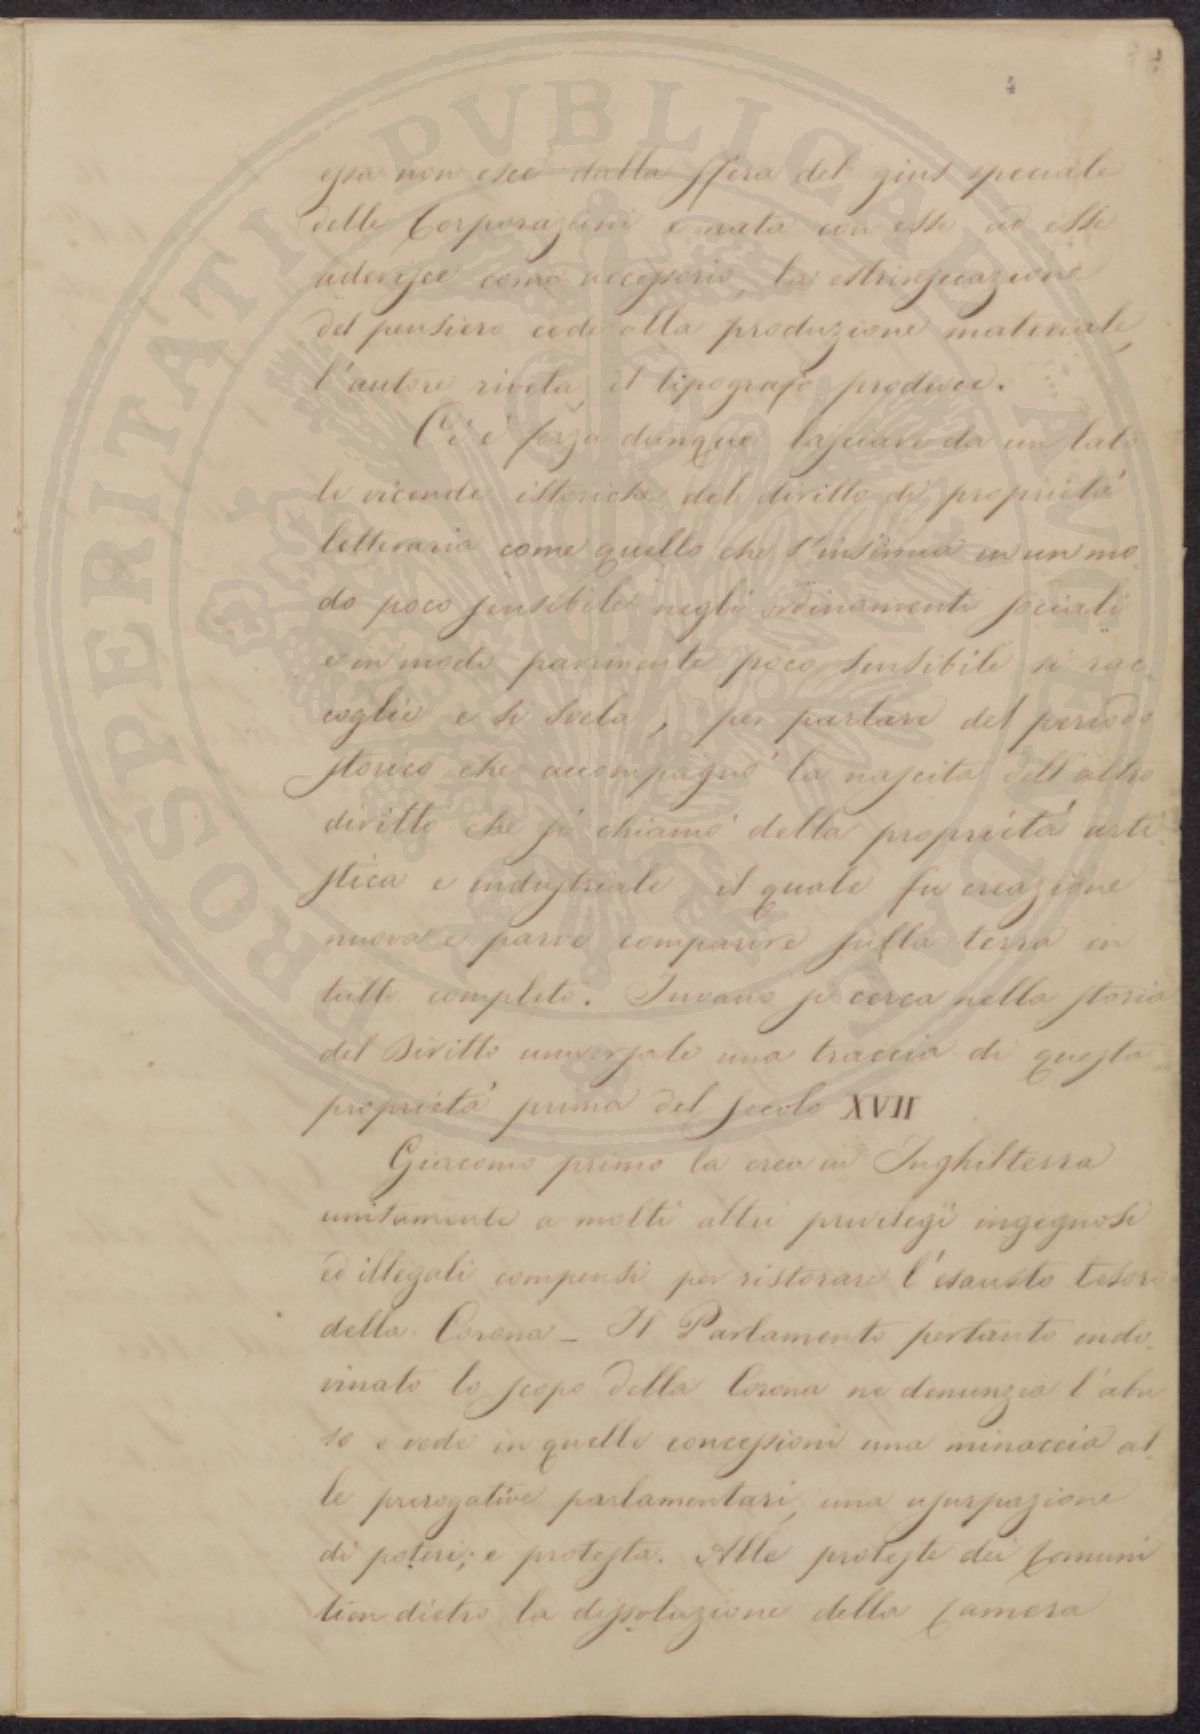 4
essa non esce dalla sfera del gius speciale
delle Corporazioni è nata con esse ad esse
aderisce come accessorio, la estrinsecazione
del pensiero cede alla produzione materiale,
l'autore rivela, il tipografo produce.
Ci è forza dunque lasciare da un lato
le vicende istoriche del diritto di proprietà
letteraria come quello che s'insinua in un mo
do poco sensibile negli ordinamenti sociali
e in modo parimente poco sensibile si rac
coglie e si svela, per parlare del periodo
storico che accompagnò la nascita dell'altro
diritto che si chiamò della proprietà arti
stica e industriale il quale fu creazione
nuova e parve comparire sulla terra in
tutto completo. Invano si cerca nella storia
del Diritto universale una traccia di questa
proprietà prima del secolo XVII
Giacomo primo la crea in Inghilterra
unitamente a molti altri privilegi ingegnosi
ed illegali compensi per ristorare l'esausto tesoro
della Corona - Il Parlamento pertanto indo
vinato lo scopo della Corona ne denunzia l'abu
so e vede in quelle concessioni una minaccia al
le prerogative parlamentari, una usurpazione
di poteri; e protesta. Alle proteste dei Comuni
tien dietro la dissoluzione della Camera
PVBLICAE
PROSPERITATI